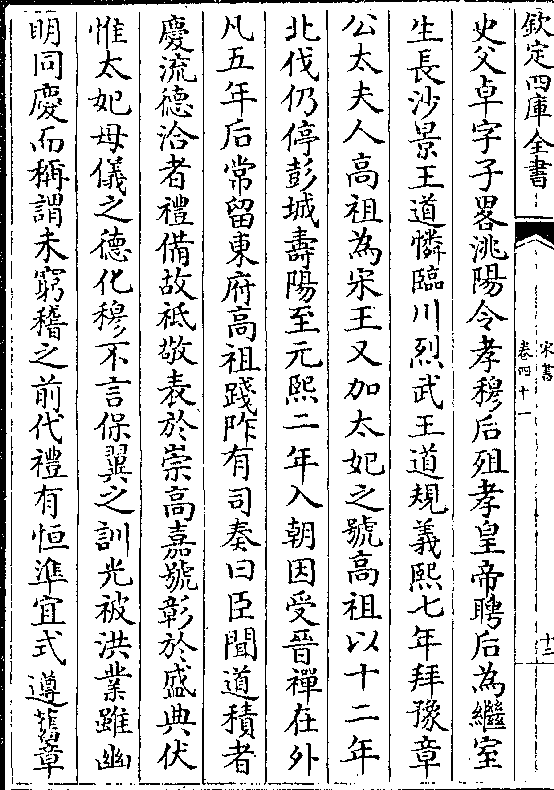 欽定四庫全書
宋書
卷四十一
十三
史父卓字子畧洮陽令孝穆后殂孝皇帝聘后為繼室
生長沙景王道憐臨川烈武王道規義熙七年拜豫章
公太夫人高祖為宋王又加太妃之號高祖以十二年
北伐仍停彭城壽陽至元熙二年入朝因受晉禪在外
凡五年后常留東府高祖踐阼有司奏曰臣聞道積者
慶流德洽者禮備故祗敬表於崇高嘉號彰於盛典伏
惟太妃母儀之德化穆不言保翼之訓光被洪業雖幽
明同慶而稱謂未窮稽之前代禮有恒準宜式遵舊章